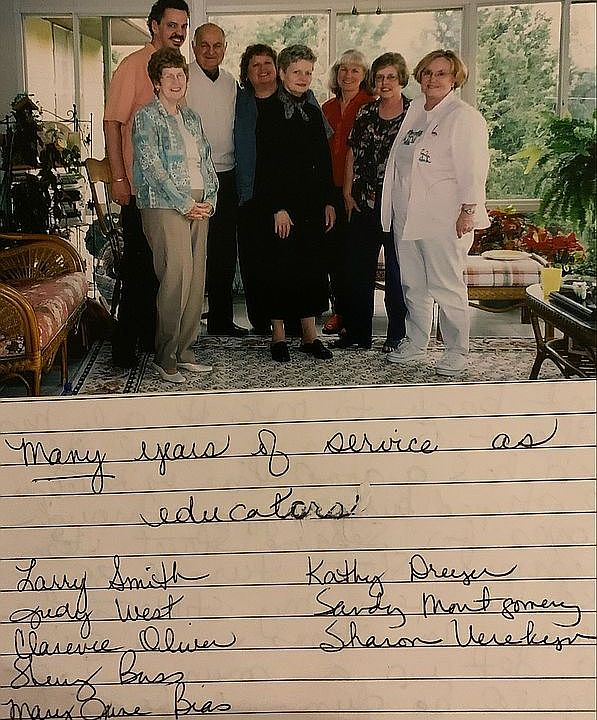 Many years of service as
educators!
Larry Smith Kathy Dreyer
Judy West Sandy Montgomery
Clarence Oliver Sharon
Bass
Mary Jane Bias